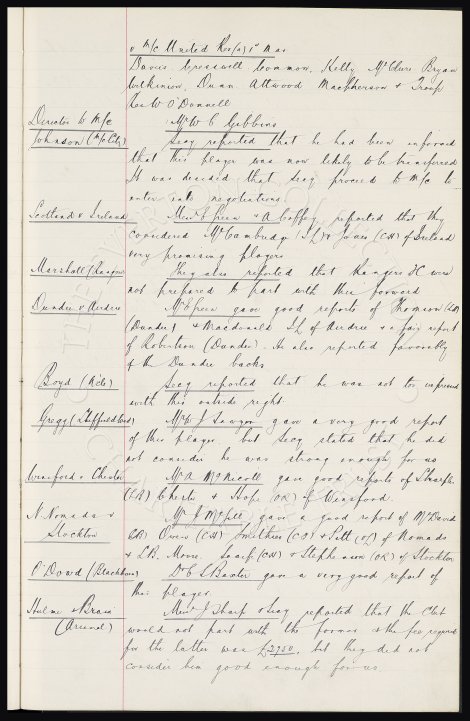 v M/c United Res(a) 1st Mar
Davies, Cresswell Common, Kelly McClure Bryan
Wilkinson, Dunn Attwood Macpherson & Troup
Res W O'Donnell
Director to M/c
Mr W C Gibbins
Johnson (M/c City)
Secy reported that he had been informed
that this player was now likely to be transferred
It was decided that Secy proceed to M/c to
enter into negotiations.
Scotland v Ireland
Messrs Green & A Coffey reported that they
considered McCambridge I.L. & Jones (CH) of Ireland
very promising players
Marshall (Rangers)
They also reported that Rangers FC were
not prepared to part with their forward
Dundee v Airdrie
Mr Green gave good reports of Thomson (LH)
(Dundee) & Macdonald I.L. of Airdrie & a fair report
of Robertson (Dundee). He also reported favorably
of the Dundee backs
Boyd
Secy reported that he was not too impressed
with this outside right.
Gregg (Sheffield Wed)
Mr R J Sawyer gave a very good report
of this player, but Secy stated that he did
not consider he was strong enough for us
Winsford v Chester
Mr A McNicoll gave good reports of
(CR) Chester & Hope (OR) of Winsford.
N. Nomads v
Mr J gave a good report of McDavid
Stockton
Owen (CH) Smithies (CF) & Pitt (OL) of Nomads
& LB. Moore. (CH) & Stephenson (OR) of Stockton
O'Dowd (Blackburn)
Dr C S Baxter gave a very good report of
this player.
Hulme & Brain
Messrs J Sharp & Secy reported that the Club
(Arsenal)
would not part with the former & the fee required
for the latter was £2750, but they did not
consider him good enough for us